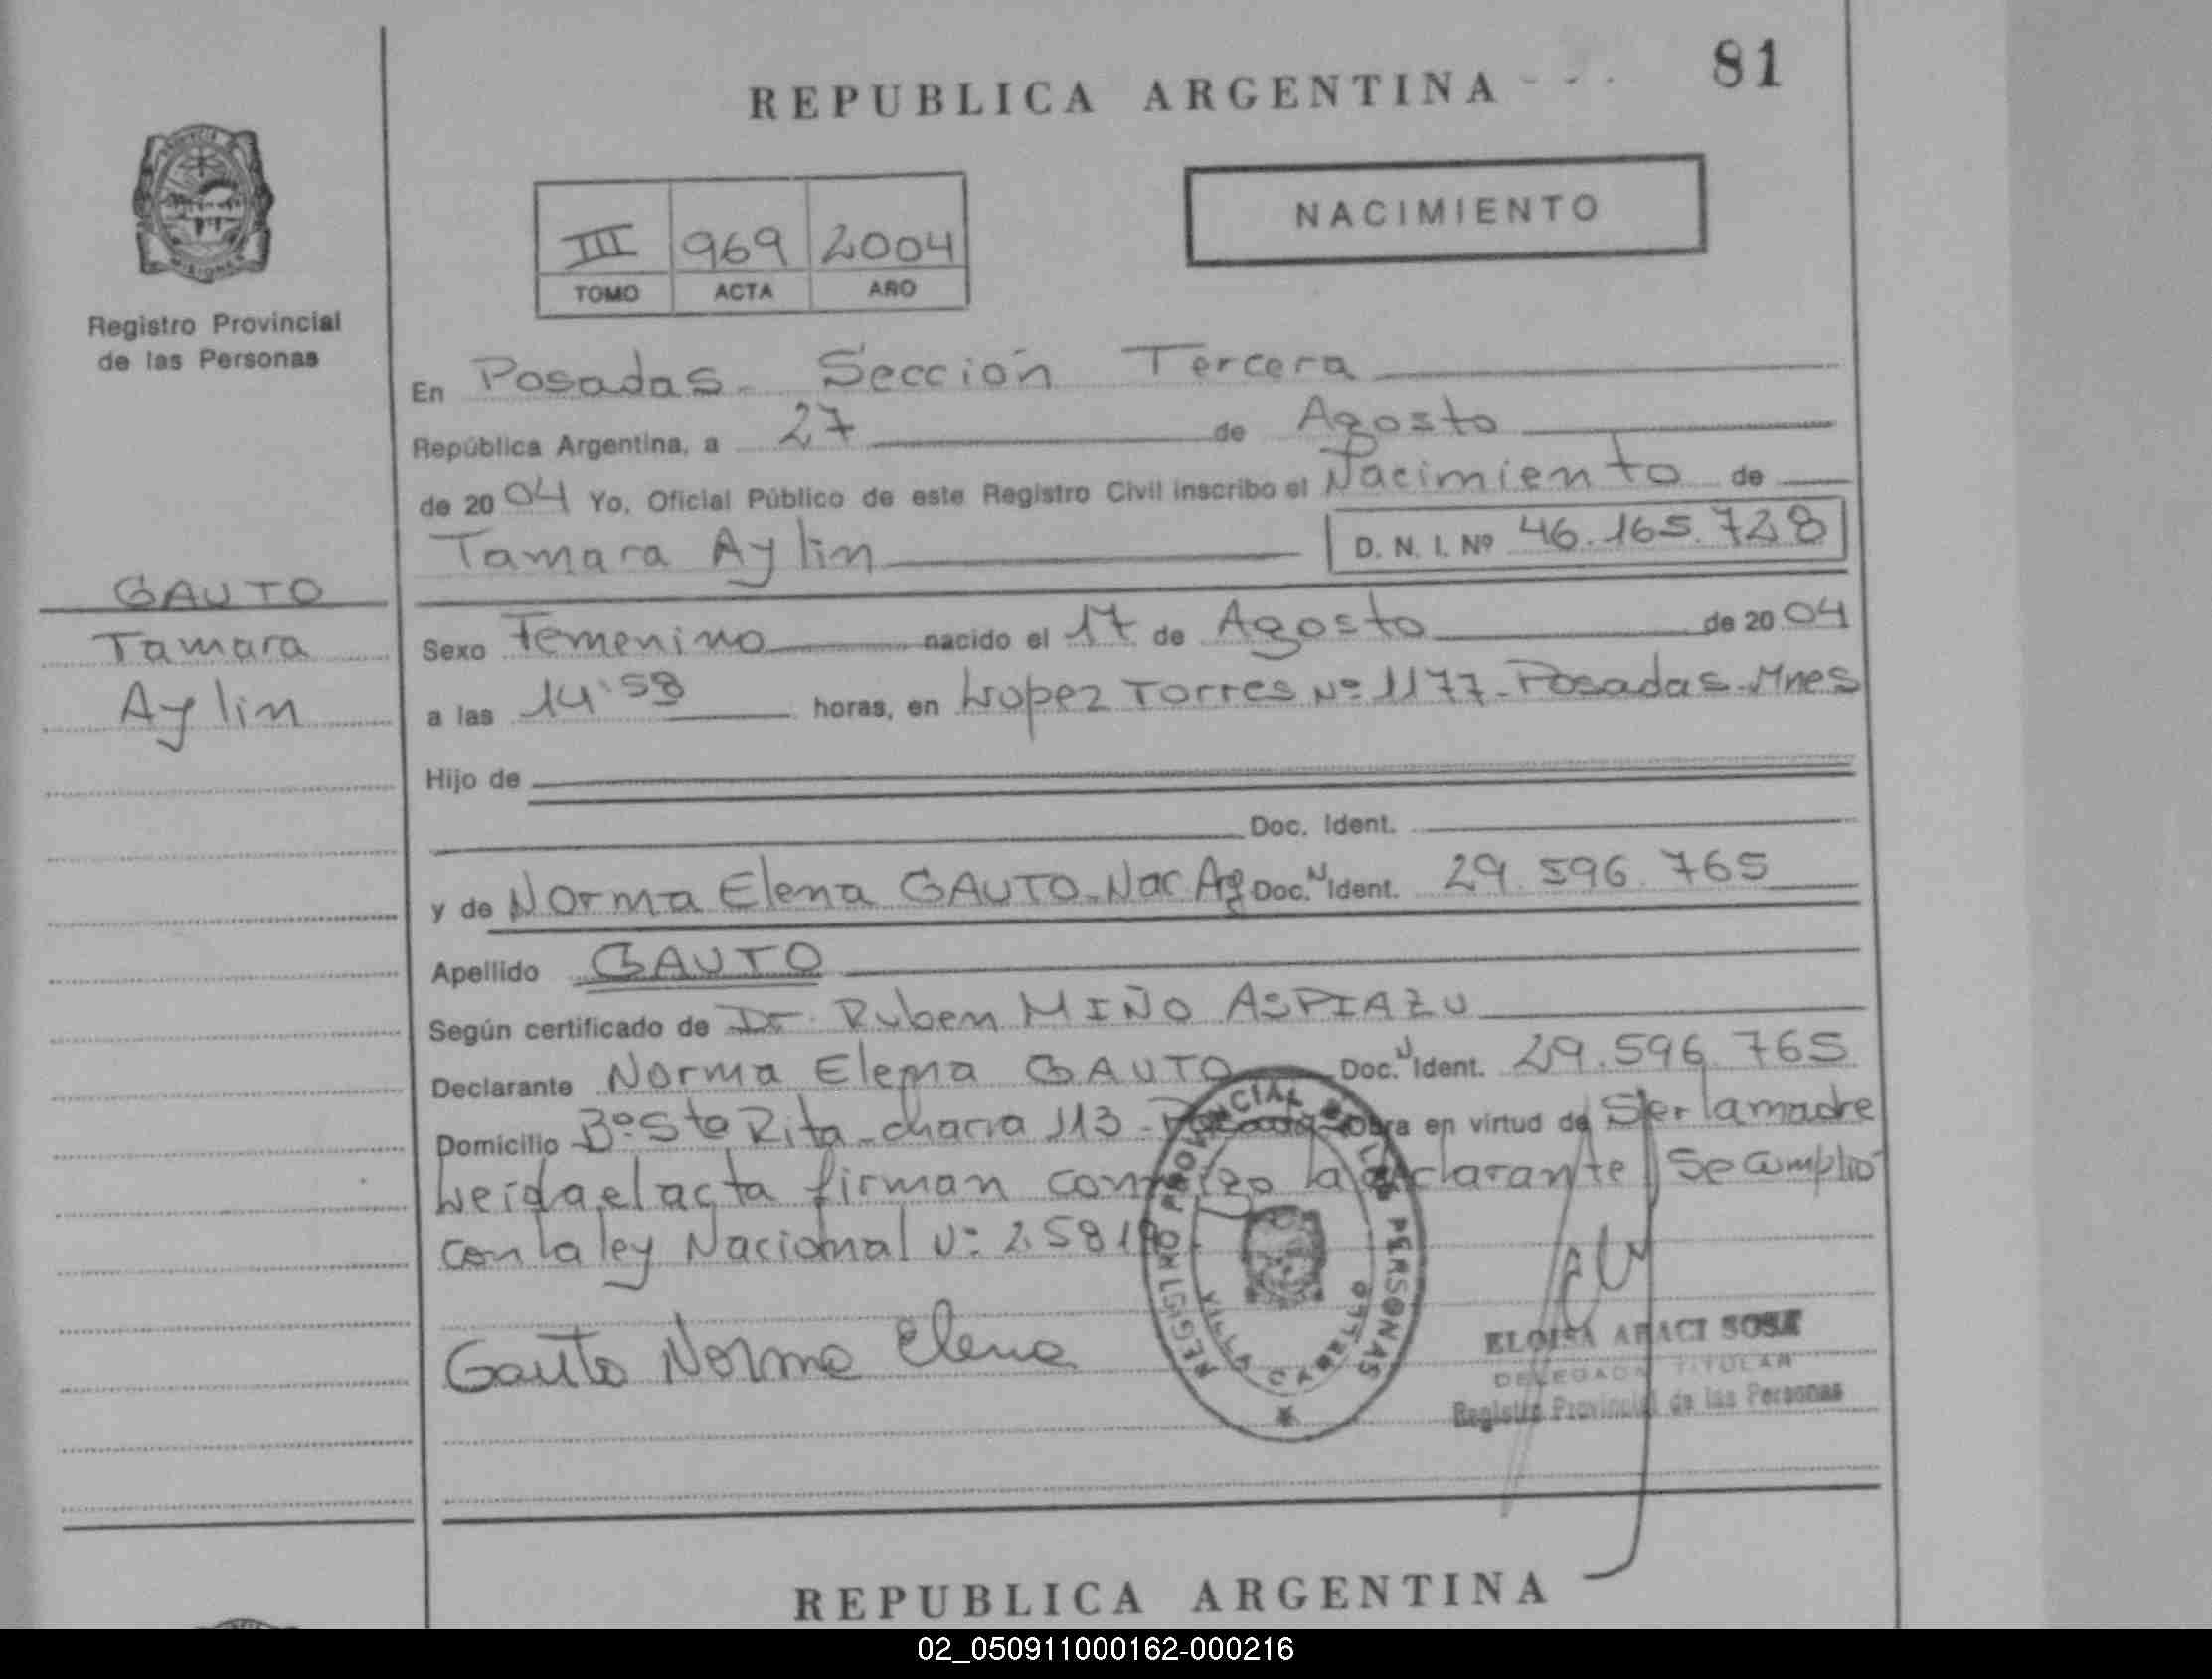 REPUBLICA ARGENTINA
81
III 969 2004
TOMO ACTA AÑO
NACIMIENTO
PROVINCIA DE
MISIONES
Registro Provincial
de las Personas
En Posadas - Sección Tercera
República Argentina, a 27 de Agosto
de 2004 Yo, Oficial Público de este Registro Civil inscribo el Nacimiento de
Tamara Aylin
D. N. I. Nº 46.165.728
GAUTO
Tamara
Aylin
Sexo Femenino nacido el 17 de Agosto de 2004
a las 14:58 horas, en Lopez Torres Nº 1177 - Posadas - Mnes
Hijo de
Doc. Ident.
y de Norma Elena GAUTO - Nac Arg Doc. Ident. 29.596.765
Apellido GAUTO
Según certificado de Dr. Ruben MIÑO ASPIAZU
Declarante Norma Elena GAUTO Doc. Ident. 29.596.765
Domicilio Bº Sta Rita - chacra 113 - Posadas Obra en virtud de Ser la madre
Leida el acta firman conmigo la declarante Se cumplio
con la ley Nacional Nº 2581
Gauto Norma Elena
REGISTRO PROVINCIAL DE LAS PERSONAS
VILLA CABELLO
ELOISA ARACI SOSA
DELEGADA TITULAR
Registro Provincial de las Personas
REPUBLICA ARGENTINA
02_050911000162-000216